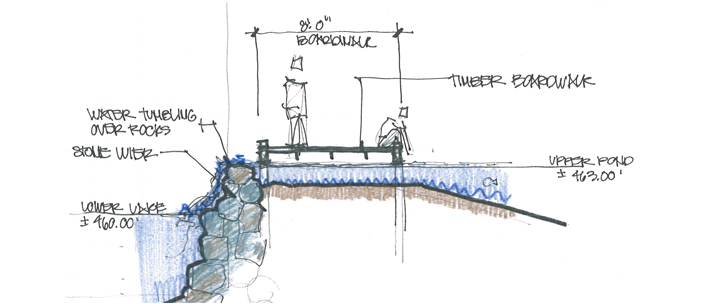 8'.0"
BOARDWALK
TIMBER BOARDWALK
WATER TUMBLING
OVER ROCKS
STONE WIER
UPPER POND
± 463.00'
LOWER LAKE
± 460.00'